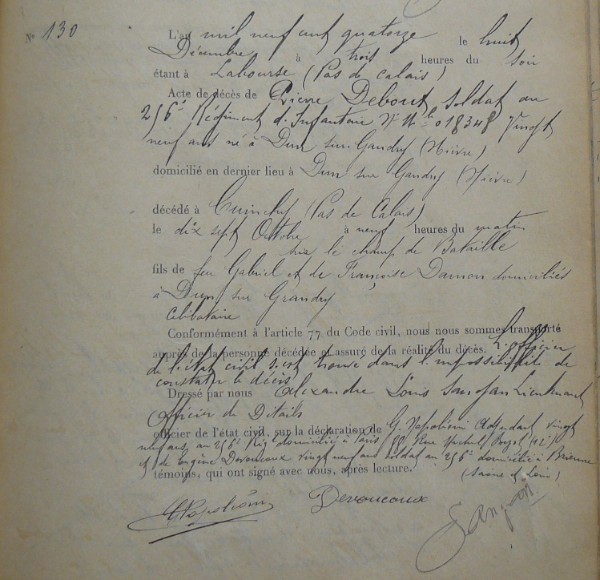 N° 130
L'an mil neuf cent quatorze le huit
Décembre à trois heures du soir
étant à Labourse (Pas de Calais)
Acte de décès de Pierre Debout, Soldat au
256e Régiment d'Infanterie N° Mle 018348 Vingt
neuf ans né à Dun sur Grandry (Nièvre)
domicilié en dernier lieu à Dun sur Grandry (Nièvre)
décédé à Cuinchy (Pas de Calais)
le dix sept Octobre à neuf heures du matin
sur le champ de Bataille
fils de feu Gabriel et de Françoise Damon domiciliés
à Dun sur Grandry
célibataire
Conformément à l'article 77 du Code civil, nous nous sommes transporté
auprès de la personne décédée et assuré de la réalité du décès. L'officier
de l'état civil s'est trouvé dans l'impossibilité de
constater le décès
Dressé par nous Alexandre Louis Lieutenant
Officier de Détails
officier de l'état civil, sur la déclaration de G. Napoléoni vingt
neuf ans au 256e domicilié à Paris Rue
et de Eugène Devoucoux vingt neuf ans soldat au 256e domicilié à
témoins, qui ont signé avec nous, après lecture. (Saône et Loire)
Napoléoni Devoucoux